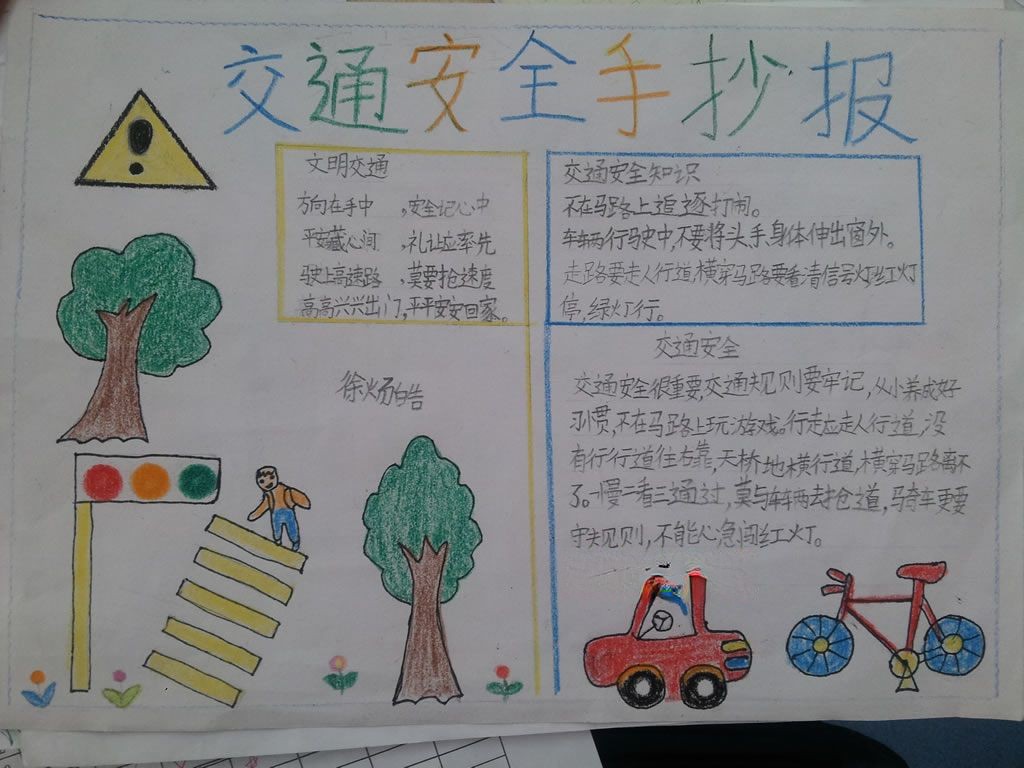 交通安全手抄报
文明交通
方向在手中 ,安全记心中
平安藏心间 ,礼让应率先
驶上高速路 ,莫要抢速度
高高兴兴出门,平平安安回家。
交通安全知识
不在马路上追逐打闹。
车辆行驶中,不要将头手、身体伸出窗外。
走路要走人行道,横穿马路要看清信号灯红灯
停,绿灯行。
交通安全
交通安全很重要,交通规则要牢记,从小养成好
习惯,不在马路上玩游戏。行走应走人行道,没
有行行道往右靠,天桥地横行道,横穿马路离不
了。一慢二看三通过,莫与车辆去抢道,骑车更要
守规则,不能心急闯红灯。
徐炀皓